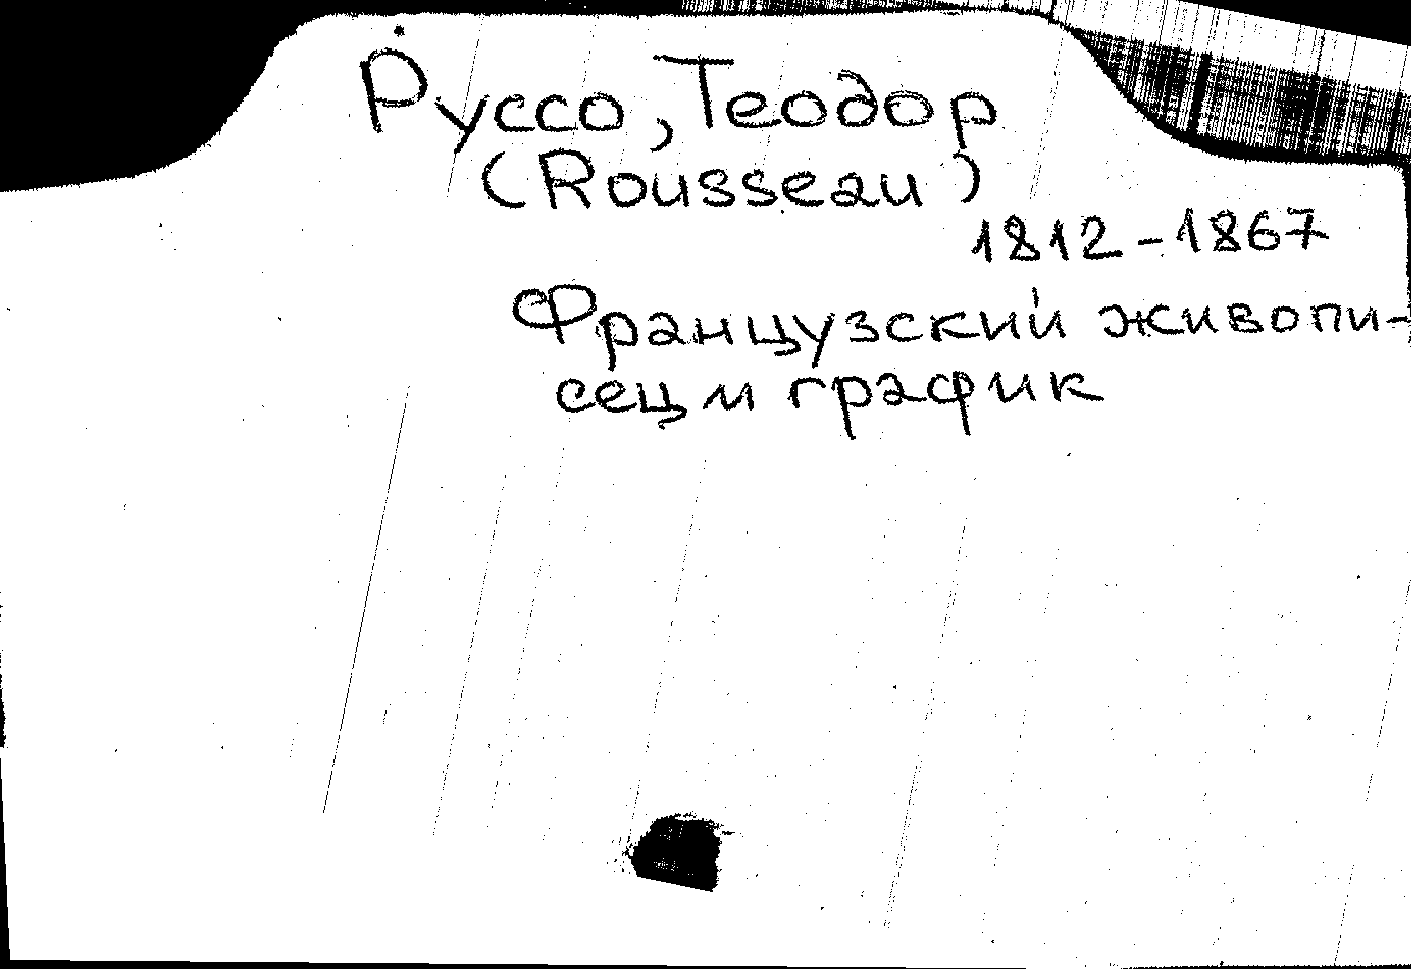 Руссо, Теодор
(Rousseau)
1812-1867
Французский живопи-
сец и график